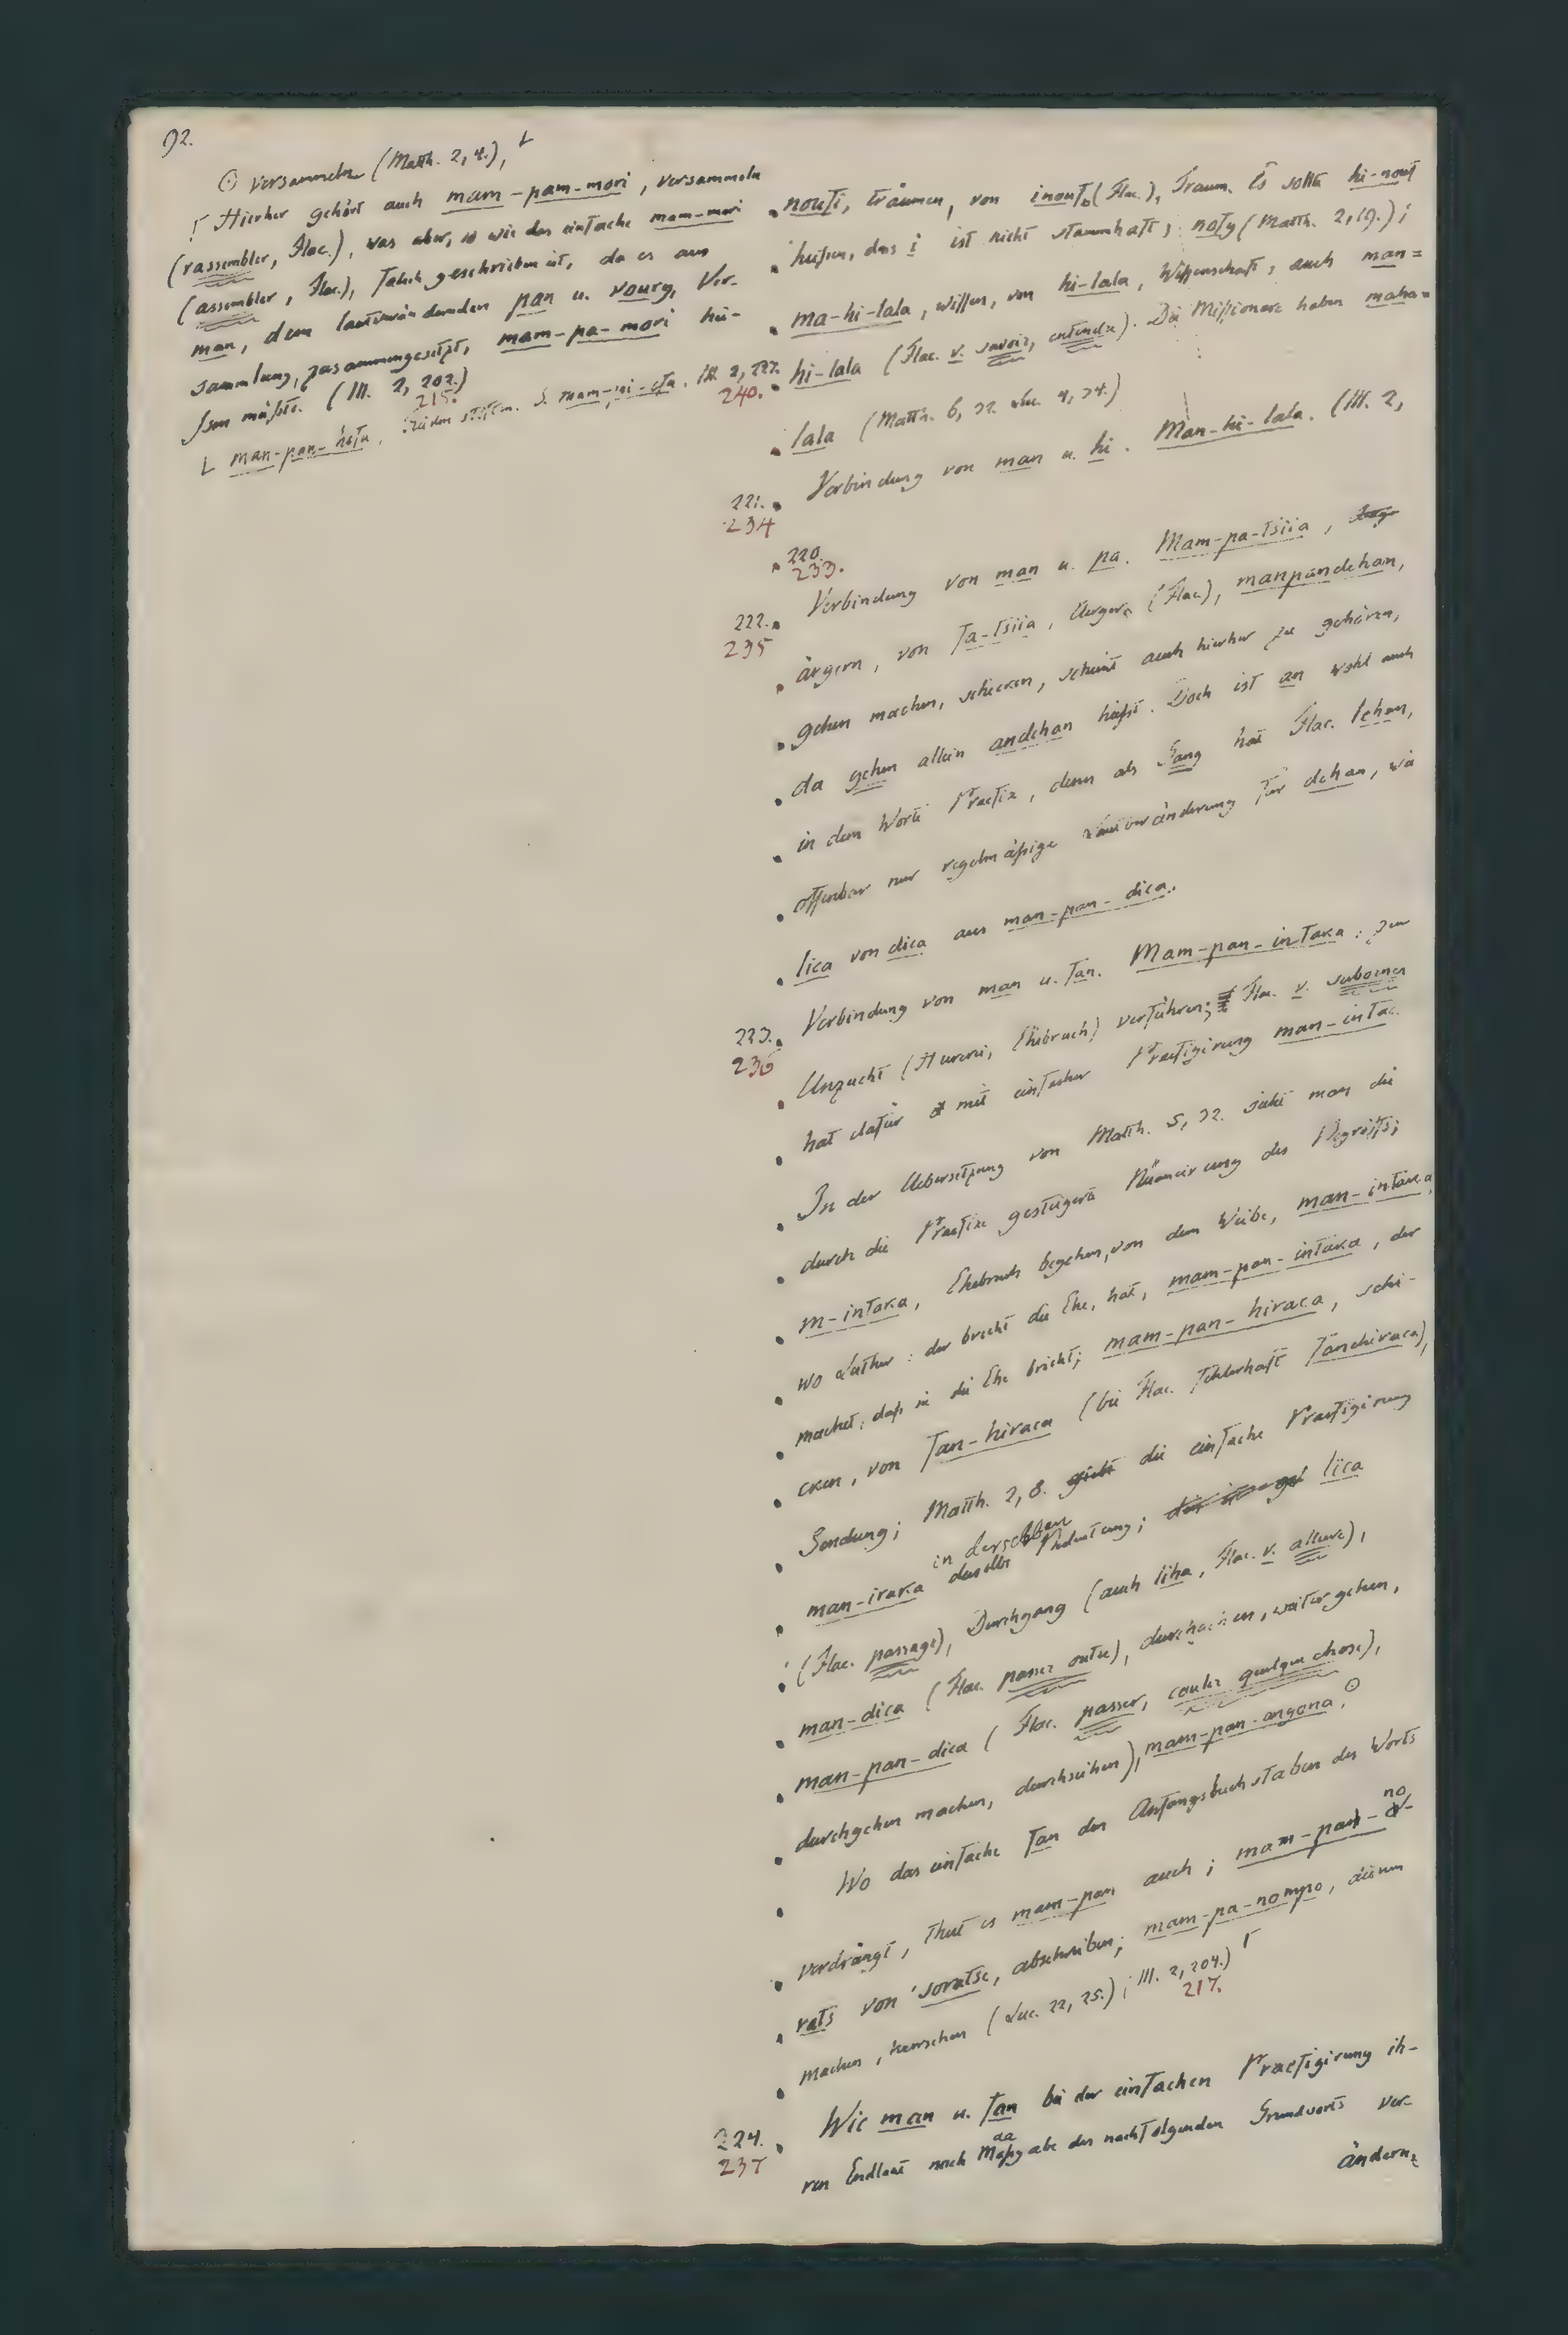 92.
⊙ versammeln (Matth. 2, 4.), L
Γ Hierher gehört auch mam-pam-mori, versammeln
(rassembler, Flac.), was aber, so wie das einfache mam-mori
(assembler, Flac.), falsch geschrieben ist, da es aus
man, dem lautverändernden pan u. voury, Ver-
sammlung, zusammengesetzt, mam-pa-mori hei-
ssen müsste. (III. 2, 202.)
215.
L man-pan- stiften. S. mam-pi- III. 2, 227.
240.
noufi, träumen, von inoufi (Flac.), Traum. Es sollte hi-noufi
heissen, das i ist nicht stammhaft; nofy (Matth. 2, 19.);
ma-hi-lala, wissen, von hi-lala, Wissenschaft; auch man=
hi-lala (Flac. v. savoir, entendu). Die Missionare haben maha=
lala (Matth. 6, 32. Luc. 4, 34.)
221. Verbindung von man u. hi. Man-hi-lala. (III. 2,
234
220.
233.
222. Verbindung von man u. fa. Mam-pa-tsiia,
235
ärgern, von fa-tsiia, Aerger (Flac.), manpandehan,
gehen machen, scheint auch hierher zu gehören,
da gehen allein andehan heisst. Doch ist an wohl auch
in dem Worte Praefix, denn als Gang hat Flac. lehan,
offenbar nur regelmässige Lautveränderung für dehan, wie
lica von dica aus man-pan-dica.
223. Verbindung von man u. fan. Mam-pan-intaka: zur
236
Unzucht (Hurerei, Ehebruch) verführen; Flac. v. suborner
hat dafür mit einfacher Praefigirung man-intac.
In der Uebersetzung von Matth. 5, 32. sieht man die
durch die Praefixe gesteigerte Nüancirung des Begriffs;
m-intaka, Ehebruch begehen, von dem Weibe, man-intaka,
wo Luther: der bricht die Ehe, hat, mam-pan-intaka, der
machet, dass sie die Ehe bricht; mam-pan-hiraca, schi-
cken, von fan-hiraca (bei Flac. fehlerhaft fanchiraca),
Sendung; Matth. 2, 8. giebt die einfache Praefigirung
man-iraka in derselben Bedeutung; lica
(Flac. passage), Durchgang (auch liha, Flac. v. allure),
man-dica (Flac. passer outre), durchgehen, weitergehen,
man-pan-dica (Flac. passer, couler quelque chose),
durchgehen machen, durchseihen), mam-pan-angona, ⊙
Wo das einfache fan den Anfangsbuchstaben des Worts
verdrängt, thut es mam-pan auch; mam-pan-no-
rats von soratse, abschreiben; mam-pa-nompo, dienen
machen, herrschen (Luc. 22, 25.); III. 2, 204.) Γ
217.
224. Wie man u. fan bei der einfachen Praefigirung ih-
237
ren Endlaut nach Massgabe des nachfolgenden Grundworts ver-
ändern,